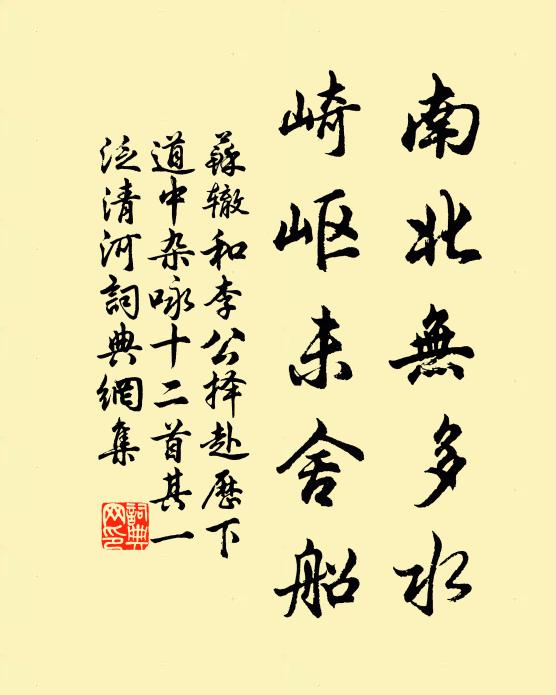 南北無多水
崎岖未舍船
蘇辙和李公择赴歷下
道中杂咏十二首其一
泛清河詞典網集
詞典网印